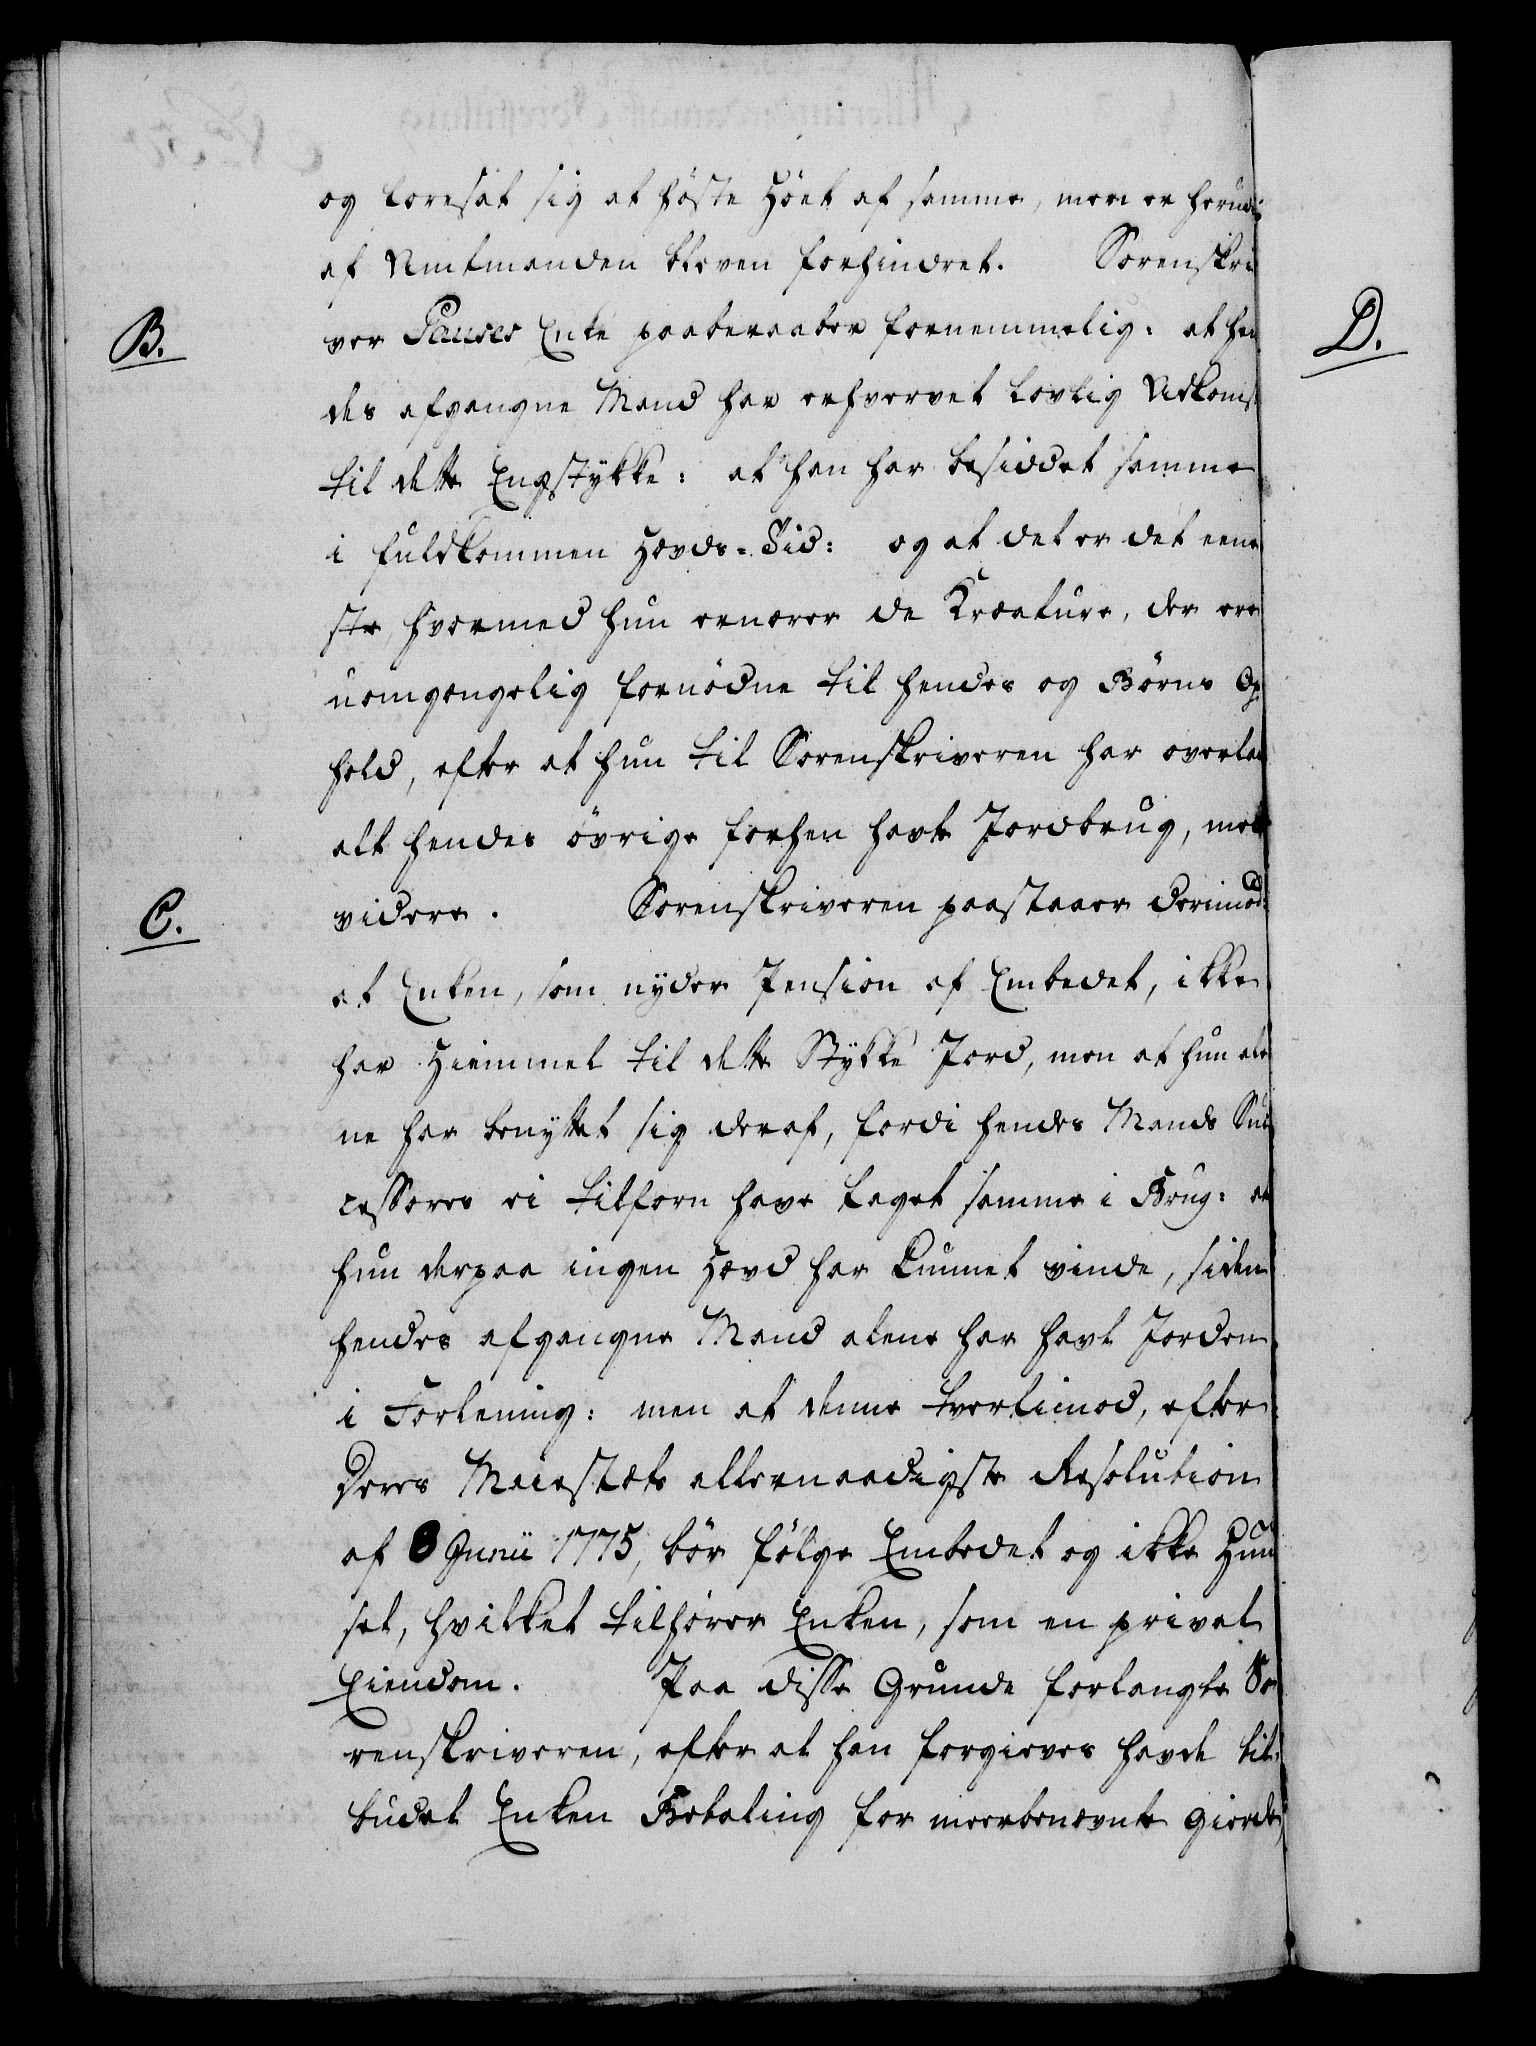 og foresat sig at höste Höet af samme, men er herudi
af Amtmanden bleven forhindret. Sorenskri
B.
ver Pauses Enke paaberaaber fornemmelig: at hen
D.
des afgangne Mand har erhvervet lovlig Adkomst
til dette Engstykke: at han har besiddet samme
i fuldkommen Hævds-Tid: og at det er det eene
ste, hvormed hun ernærer de Kreature, der ere
uomgengelig fornödne til hendes og Börns Op
hold, efter at hun til Sorenskriveren har overladt
alt hendes övrige forhen havte Jordbrug, med
videre. Sorenskriveren paastaaer derimod:
C.
at Enken, som nyder Pension af Embedet, ikke
har Hiemmel til dette Stykke Jord, men at hun ale
ne har benyttet sig deraf, fordi hendes Mands Suc
cessores ei tilforn have taget samme i Brug: at
hun derpaa ingen Hævd har kunnet vinde, siden
hendes afgangne Mand alene har havt Jorden
i Forlening: men at denne tvertimod, efter
Deres Maiestæts allernaadigste Resolution
af 8 Junii 1775, bör fölge Embedet og ikke Huu
set, hvilket tilhører Enken, som en privat
Eiendom. Paa disse Grunde forlangte So
renskriveren, efter at han forgieves havde til
budet Enken Betaling for meerbenævnte Gierde